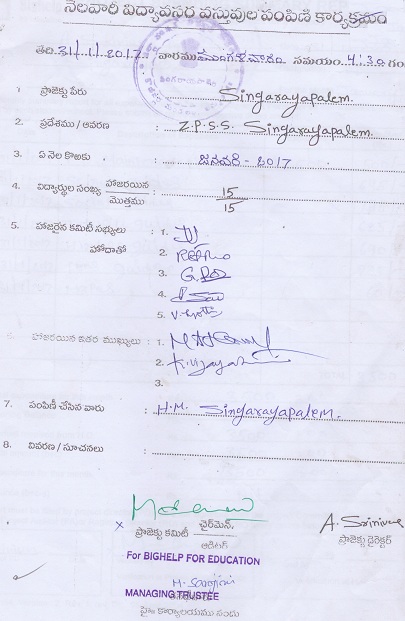 నెలవారీ విద్యావసర వస్తువుల పంపిణీ కార్యక్రమం
తేది.31/1/2017 వారము మంగళవారం సమయం.4:30 గం
1 ప్రాజెక్టు పేరు : Singarayapalem.
2. ప్రదేశము / ఆవరణ : Z.P.S.S. Singarayapalem.
3. ఏ నెల కొఱకు : జనవరి - 2017
4. విద్యార్థుల సంఖ్య హాజరయిన / మొత్తము : 15/15
5. హాజరైన కమిటీ సభ్యులు : 1.
హోదాతో 2.
3.
4.
5.
6. హాజరయిన ఇతర ముఖ్యులు : 1.
2. K. Vijaya
3.
7. పంపిణీ చేసిన వారు : H.M. Singarayapalem.
8. వివరణ / సూచనలు :
x ప్రాజెక్టు కమిటీ ఛైర్మెన్. A. Srinivas
ఆడిటర్ ప్రాజెక్టు డైరెక్టర్
For BIGHELP FOR EDUCATION
M. Sarojini
MANAGING TRUSTEE
హెడ్ కార్యాలయము నందు